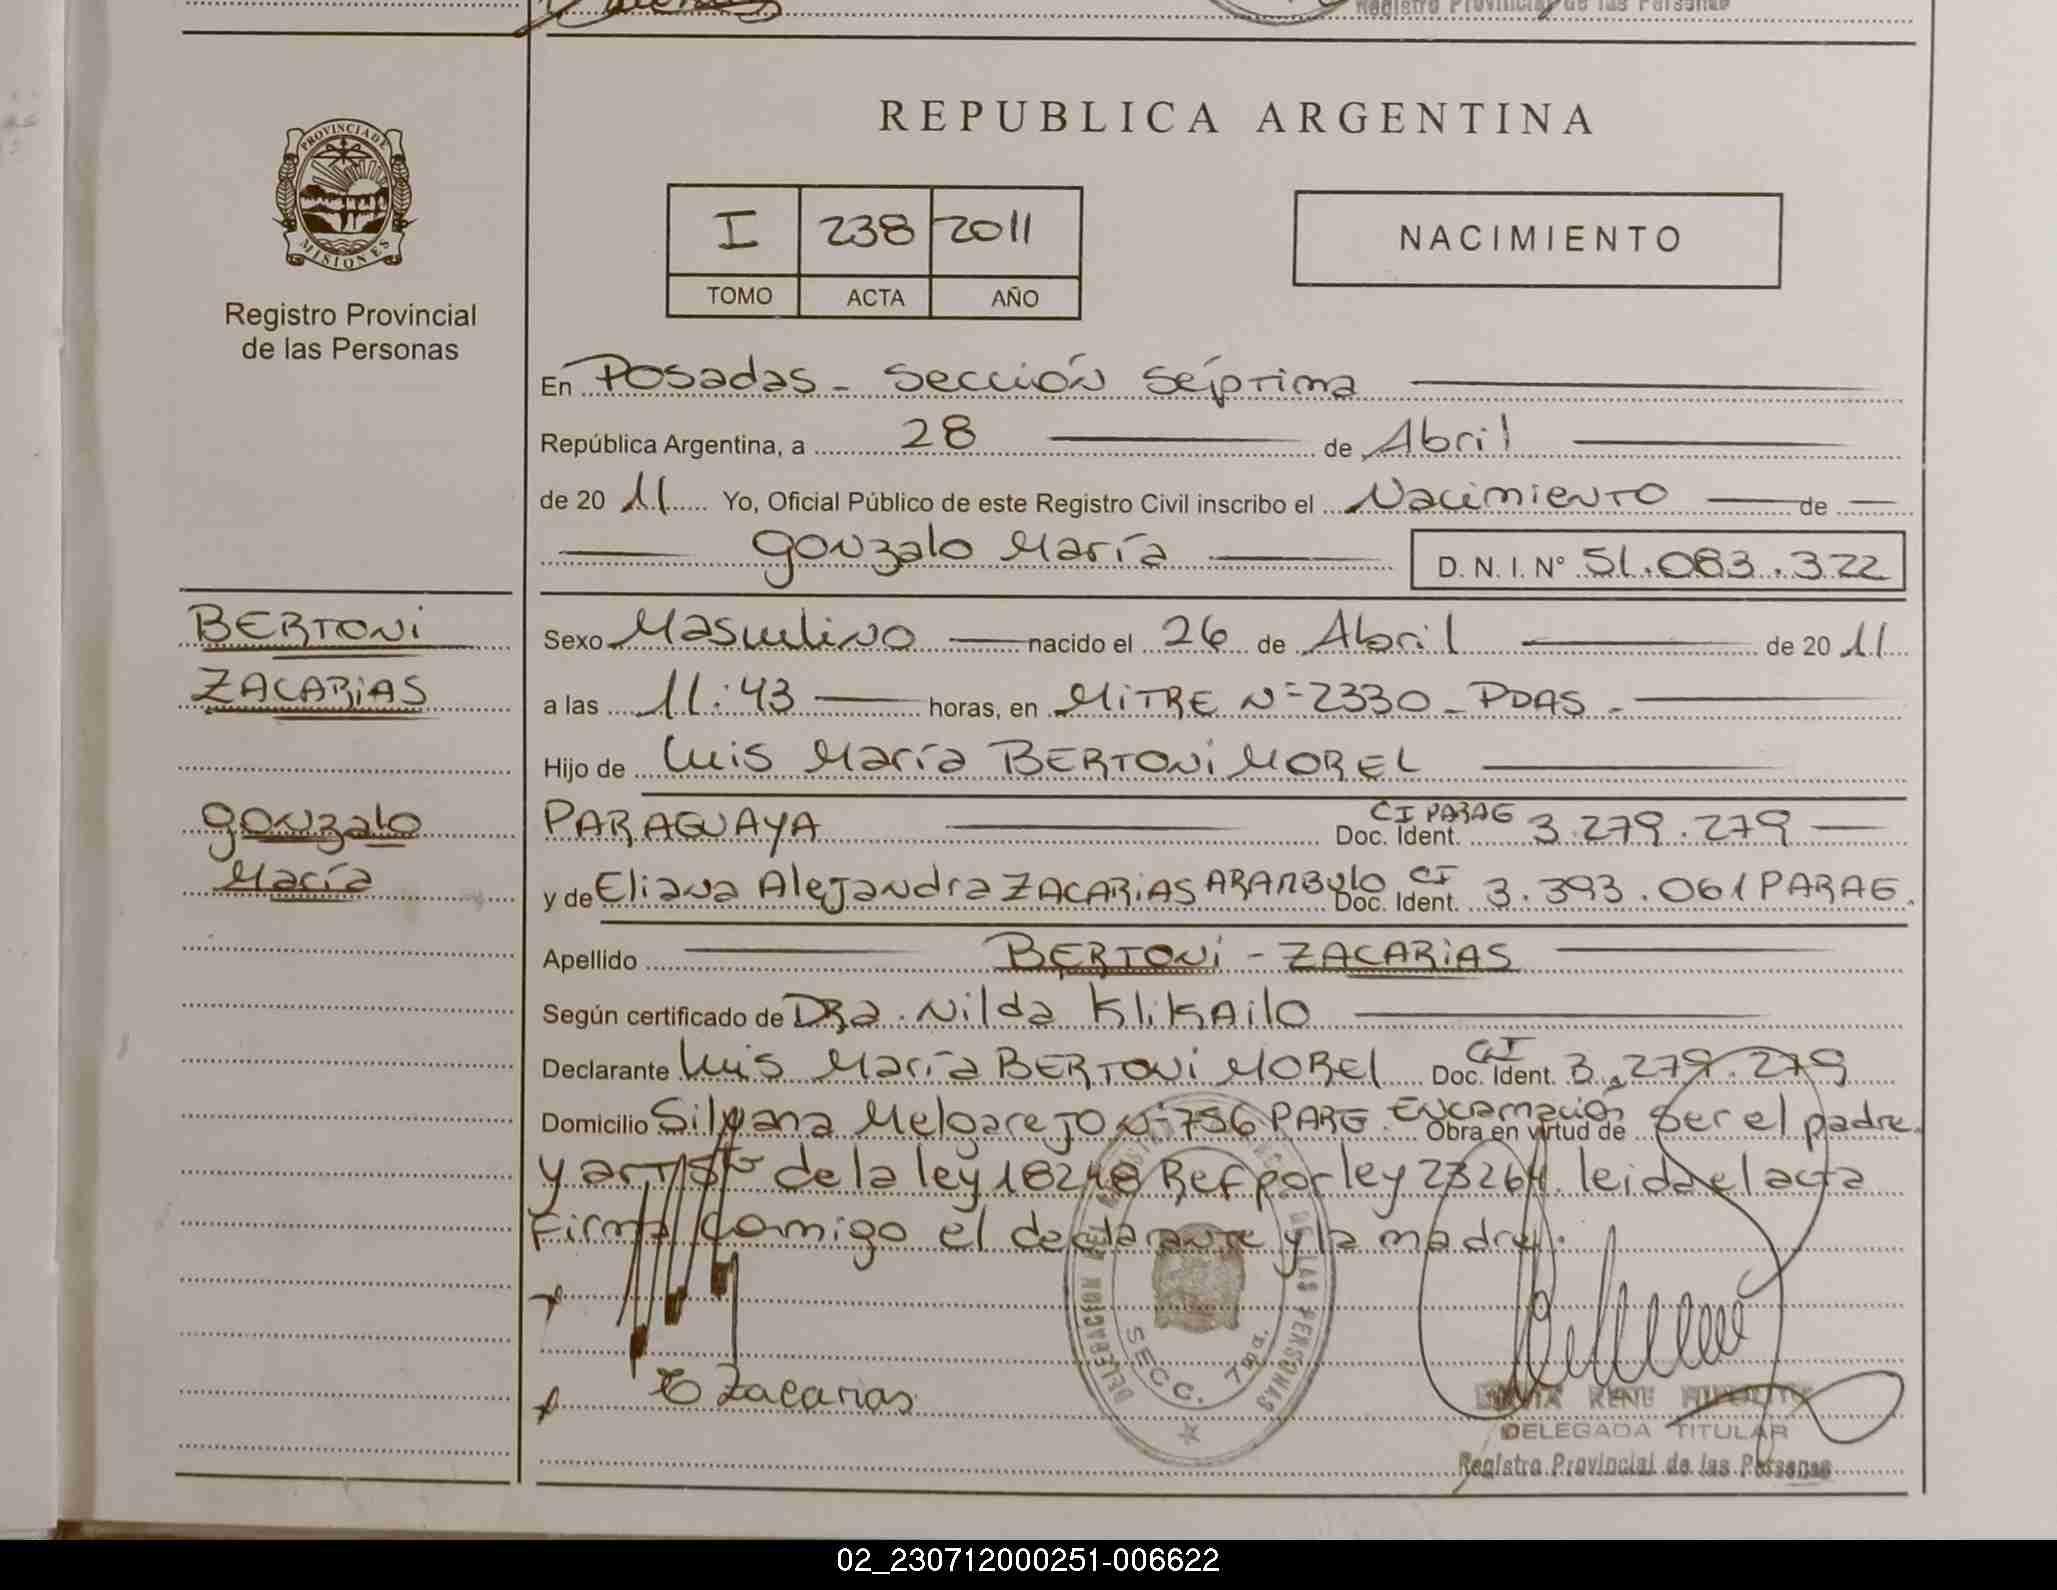 Registro Provincial de las Personas
PROVINCIA DE
MISIONES
Registro Provincial
de las Personas
REPUBLICA ARGENTINA
I 238 2011
TOMO ACTA AÑO
NACIMIENTO
En Posadas - Sección Séptima
República Argentina, a 28 de Abril
de 20 11 Yo, Oficial Público de este Registro Civil inscribo el Nacimiento de
Gonzalo María D. N. I. Nº 51.083.322
BERTONI
ZACARIAS
Gonzalo
María
Sexo Masculino nacido el 26 de Abril de 20 11
a las 11:43 horas, en MITRE Nº 2330 - PDAS -
Hijo de Luis María BERTONI MOREL
PARAGUAYA Doc. Ident. CI PARAG 3.279.279
y de Eliana Alejandra ZACARIAS ARAMBULO Doc. Ident. CI 3.393.061 PARAG.
Apellido BERTONI - ZACARIAS
Según certificado de DRa. Nilda KliKAilo
Declarante Luis María BERTONI MOREL Doc. Ident. CI 3.279.279
Domicilio Silvana Melgarejo Nº 756 PARG. Encarnación Obra en virtud de Ser el padre
y art 5to de la ley 18248 Ref por ley 23264. leida el acta
Firma conmigo el declarante y la madre.
E Zacarias
DELEGACION
DE LAS PERSONAS
SECC. 7ma.
RENE
DELEGADA TITULAR
Registro Provincial de las Personas
02_230712000251-006622